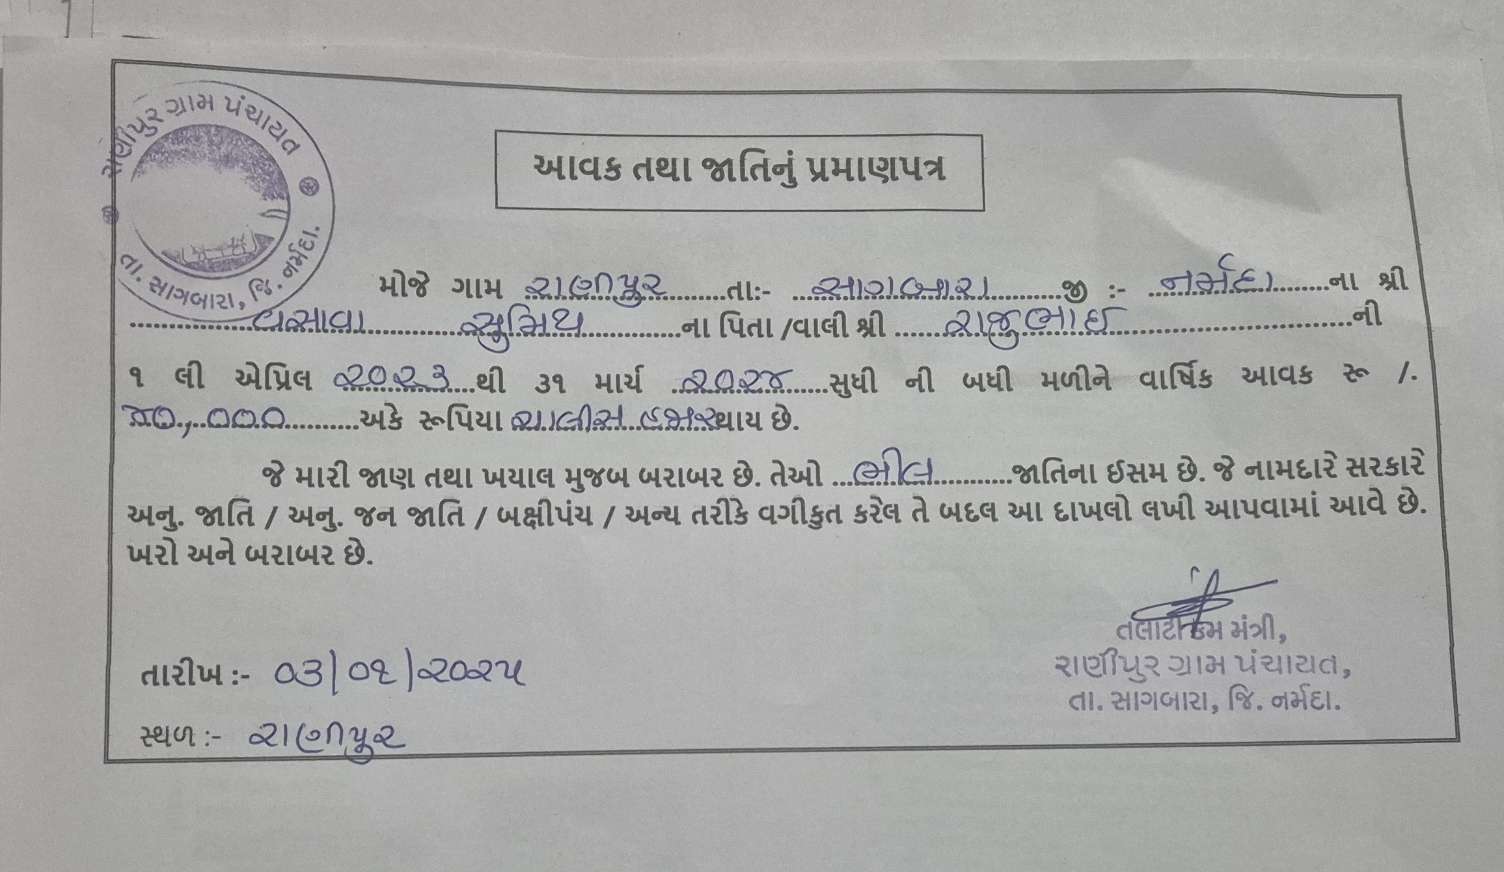 રાણીપુર ગ્રામ પંચાયત
તા. સાગબારા, જિ. નર્મદા.
આવક તથા જાતિનું પ્રમાણપત્ર
મોજે ગામ રાણીપુર તાઃ- સાગબારા જી :- નર્મદા ના શ્રી
વસાવા સુમિથ ના પિતા /વાલી શ્રી રાજુભાઈ ની
૧ લી એપ્રિલ ૨૦૨૩ થી ૩૧ માર્ચ ૨૦૨૪ સુધી ની બધી મળીને વાર્ષિક આવક રૂ /.
૪૦,૦૦૦ અકે રૂપિયા ચાલીસ હજાર થાય છે.
જે મારી જાણ તથા ખયાલ મુજબ બરાબર છે. તેઓ ભીલ જાતિના ઈસમ છે. જે નામદારે સરકારે
અનુ. જાતિ / અનુ. જન જાતિ / બક્ષીપંચ / અન્ય તરીકે વગીકુત કરેલ તે બદલ આ દાખલો લખી આપવામાં આવે છે.
ખરો અને બરાબર છે.
તલાટી કમ મંત્રી,
રાણીપુર ગ્રામ પંચાયત,
તા. સાગબારા, જિ. નર્મદા.
તારીખ :- ૦૩/૦૧/૨૦૨૫
સ્થળ :- રાણીપુર